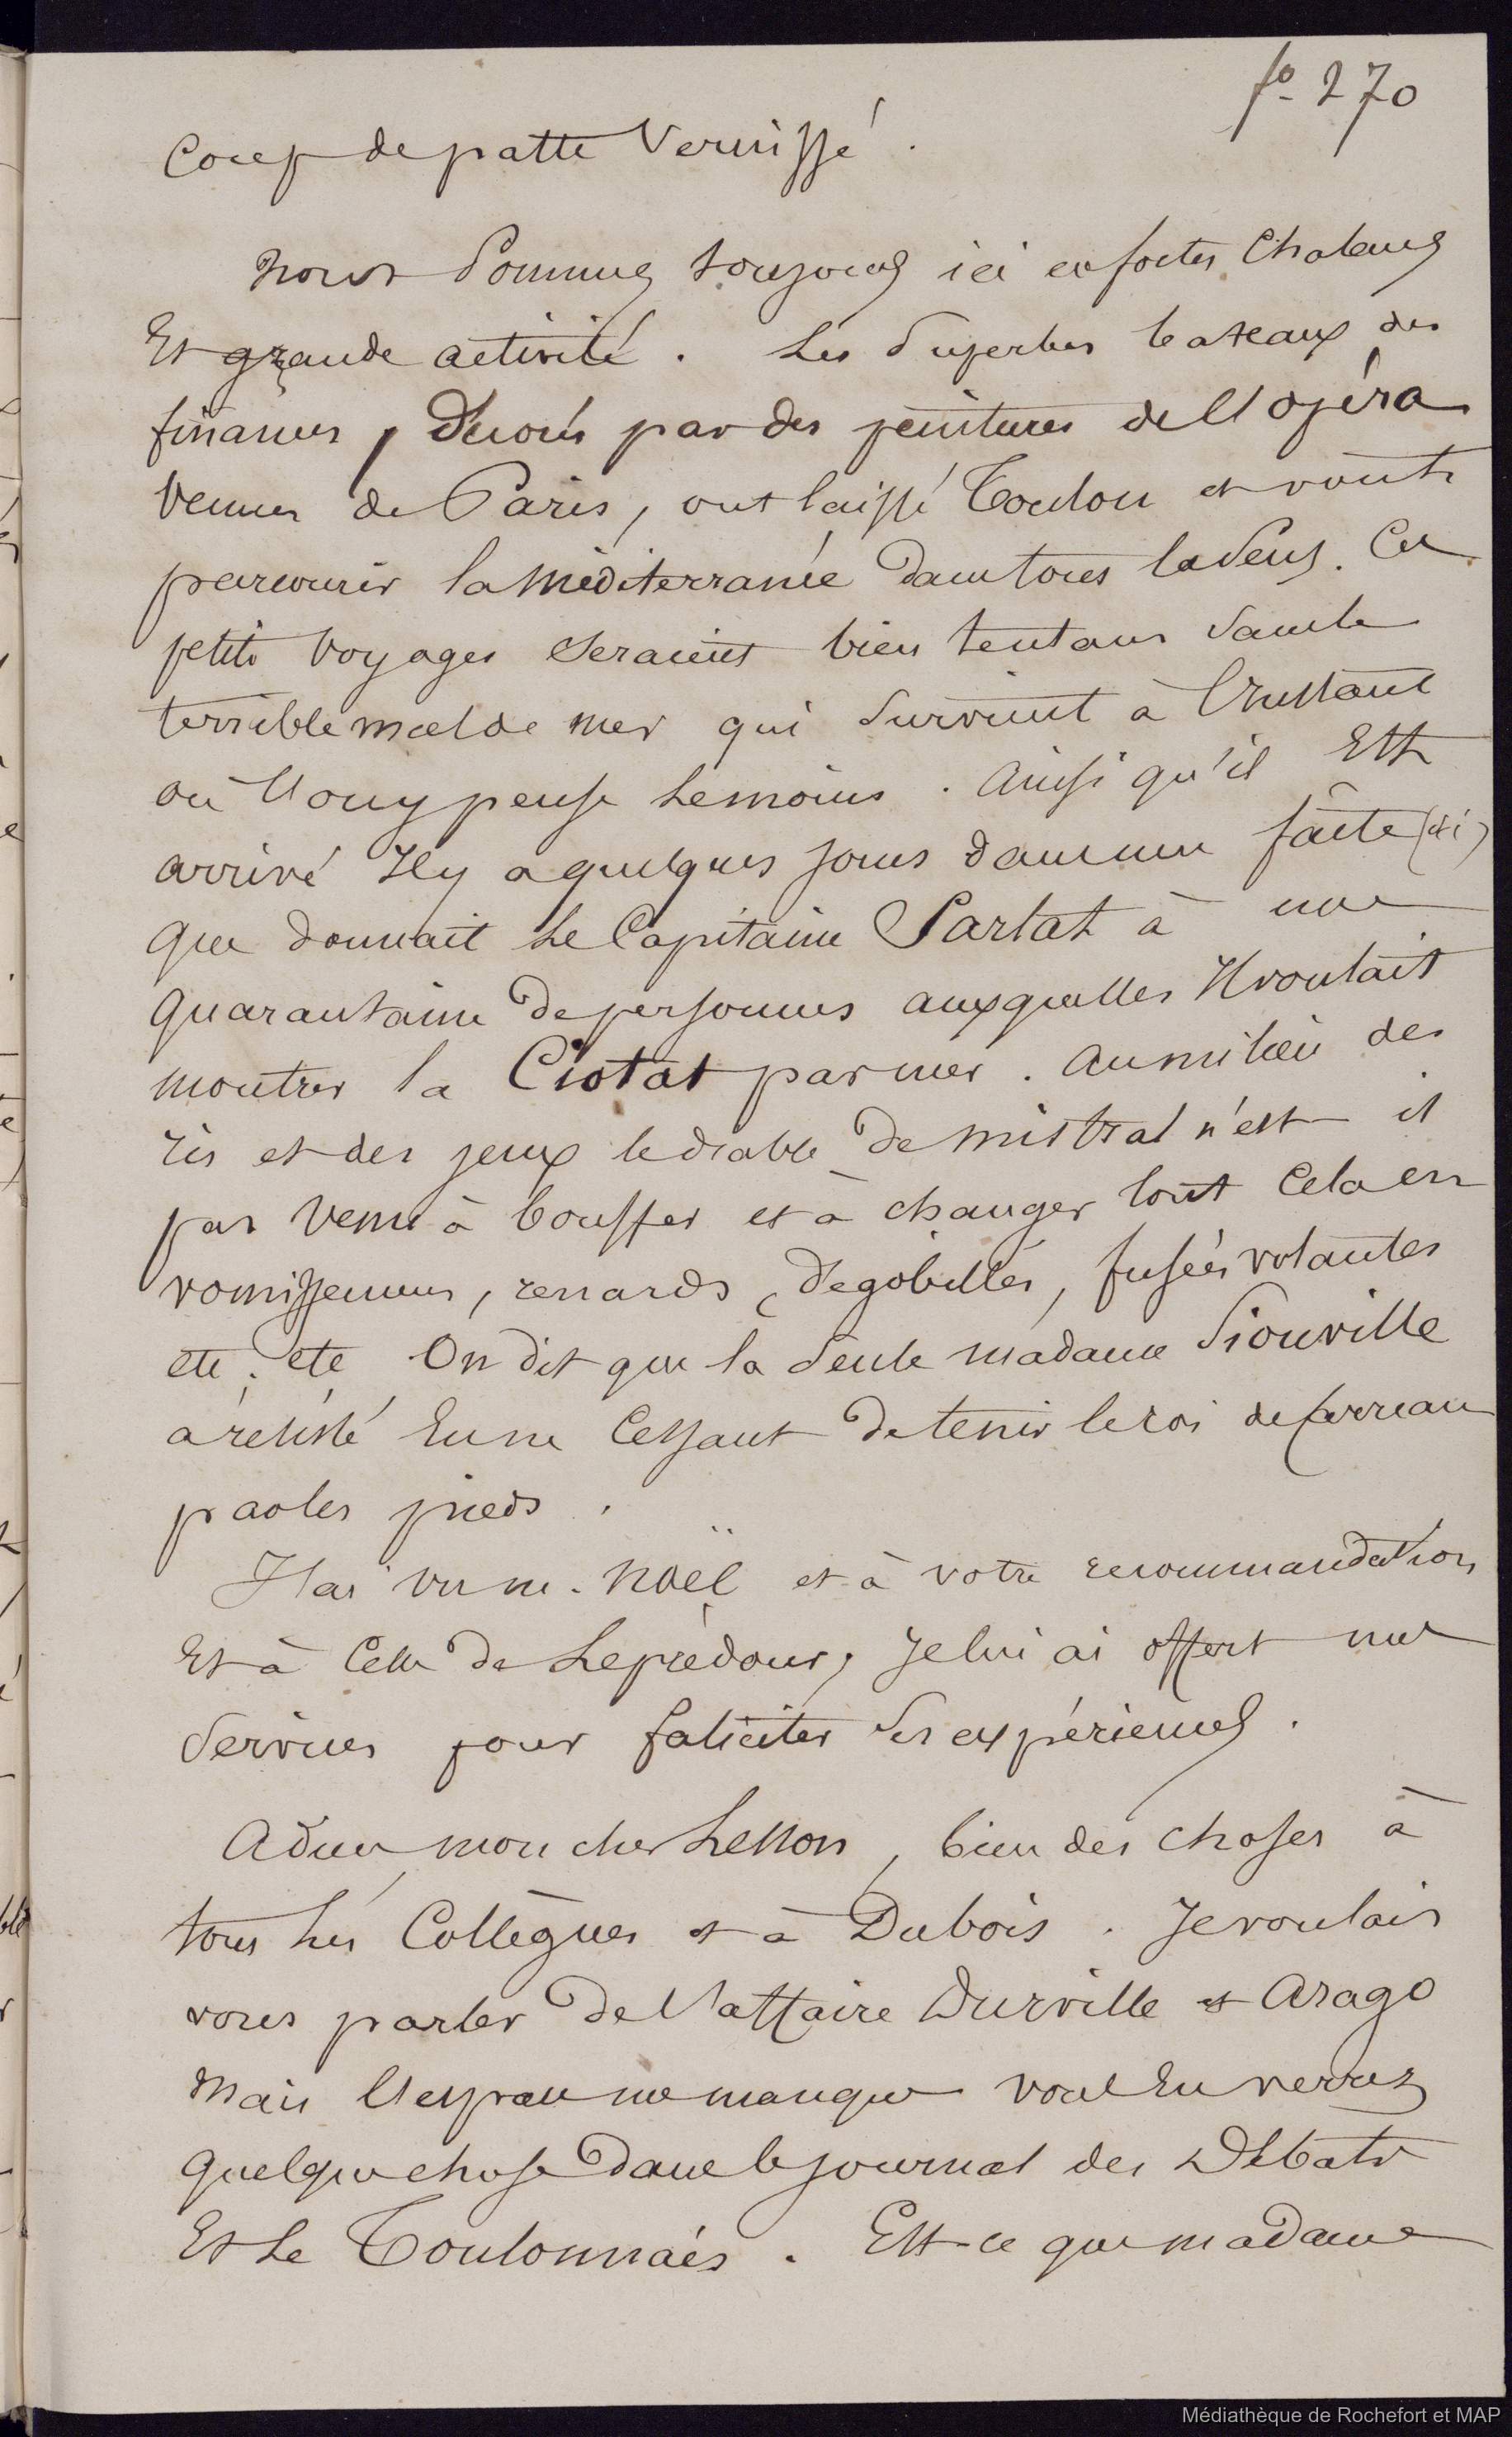 fo 270
Coup de patte Vernissé.
Nous Sommes toujours ici en fortes Chaleurs
Et grande activité. Les Superbes bateaux des
finances, décorés par des peintures de l'opéra
venues de Paris, ont laissé Toulon et vont
parcourir la Méditerranée dans tous les Sens. Ces
petits voyages seraient bien tentans sans le
terrible mal de mer qui survient à l'instant
où l'on y pense le moins. Ainsi qu'il Est
arrivé Il y a quelques jours dans une faite (si)
que donnait le Capitaine Sarlat à une
quarantaine de personnes auxquelles Il voulait
montrer la Ciotat par mer. Au milieu des
ris et des jeux le diable de mistral n'est il
pas venu à bouffer et à changer tout cela en
vomissemens, renards, dégobillés, fusées volantes
etc. etc On dit que la seule madame Siouville
a résisté En ne Cessant de tenir le roi de carreau
par les pieds.
J'ai vu m. Noël et à votre recommandation
Et à Celle de Leprédour, Je lui ai offert mes
services pour faliciter ses expériences.
Adieu mon cher Lesson, bien des choses à
tous les Collègues et à Dubois. Je voulais
vous parler de l'affaire Durville et Arago
Mais l'espace me manque vous En verrez
quelque chose dans le journal des Débats
Et Le Toulonnais. Est-ce que madame
Médiathèque de Rochefort et MAP